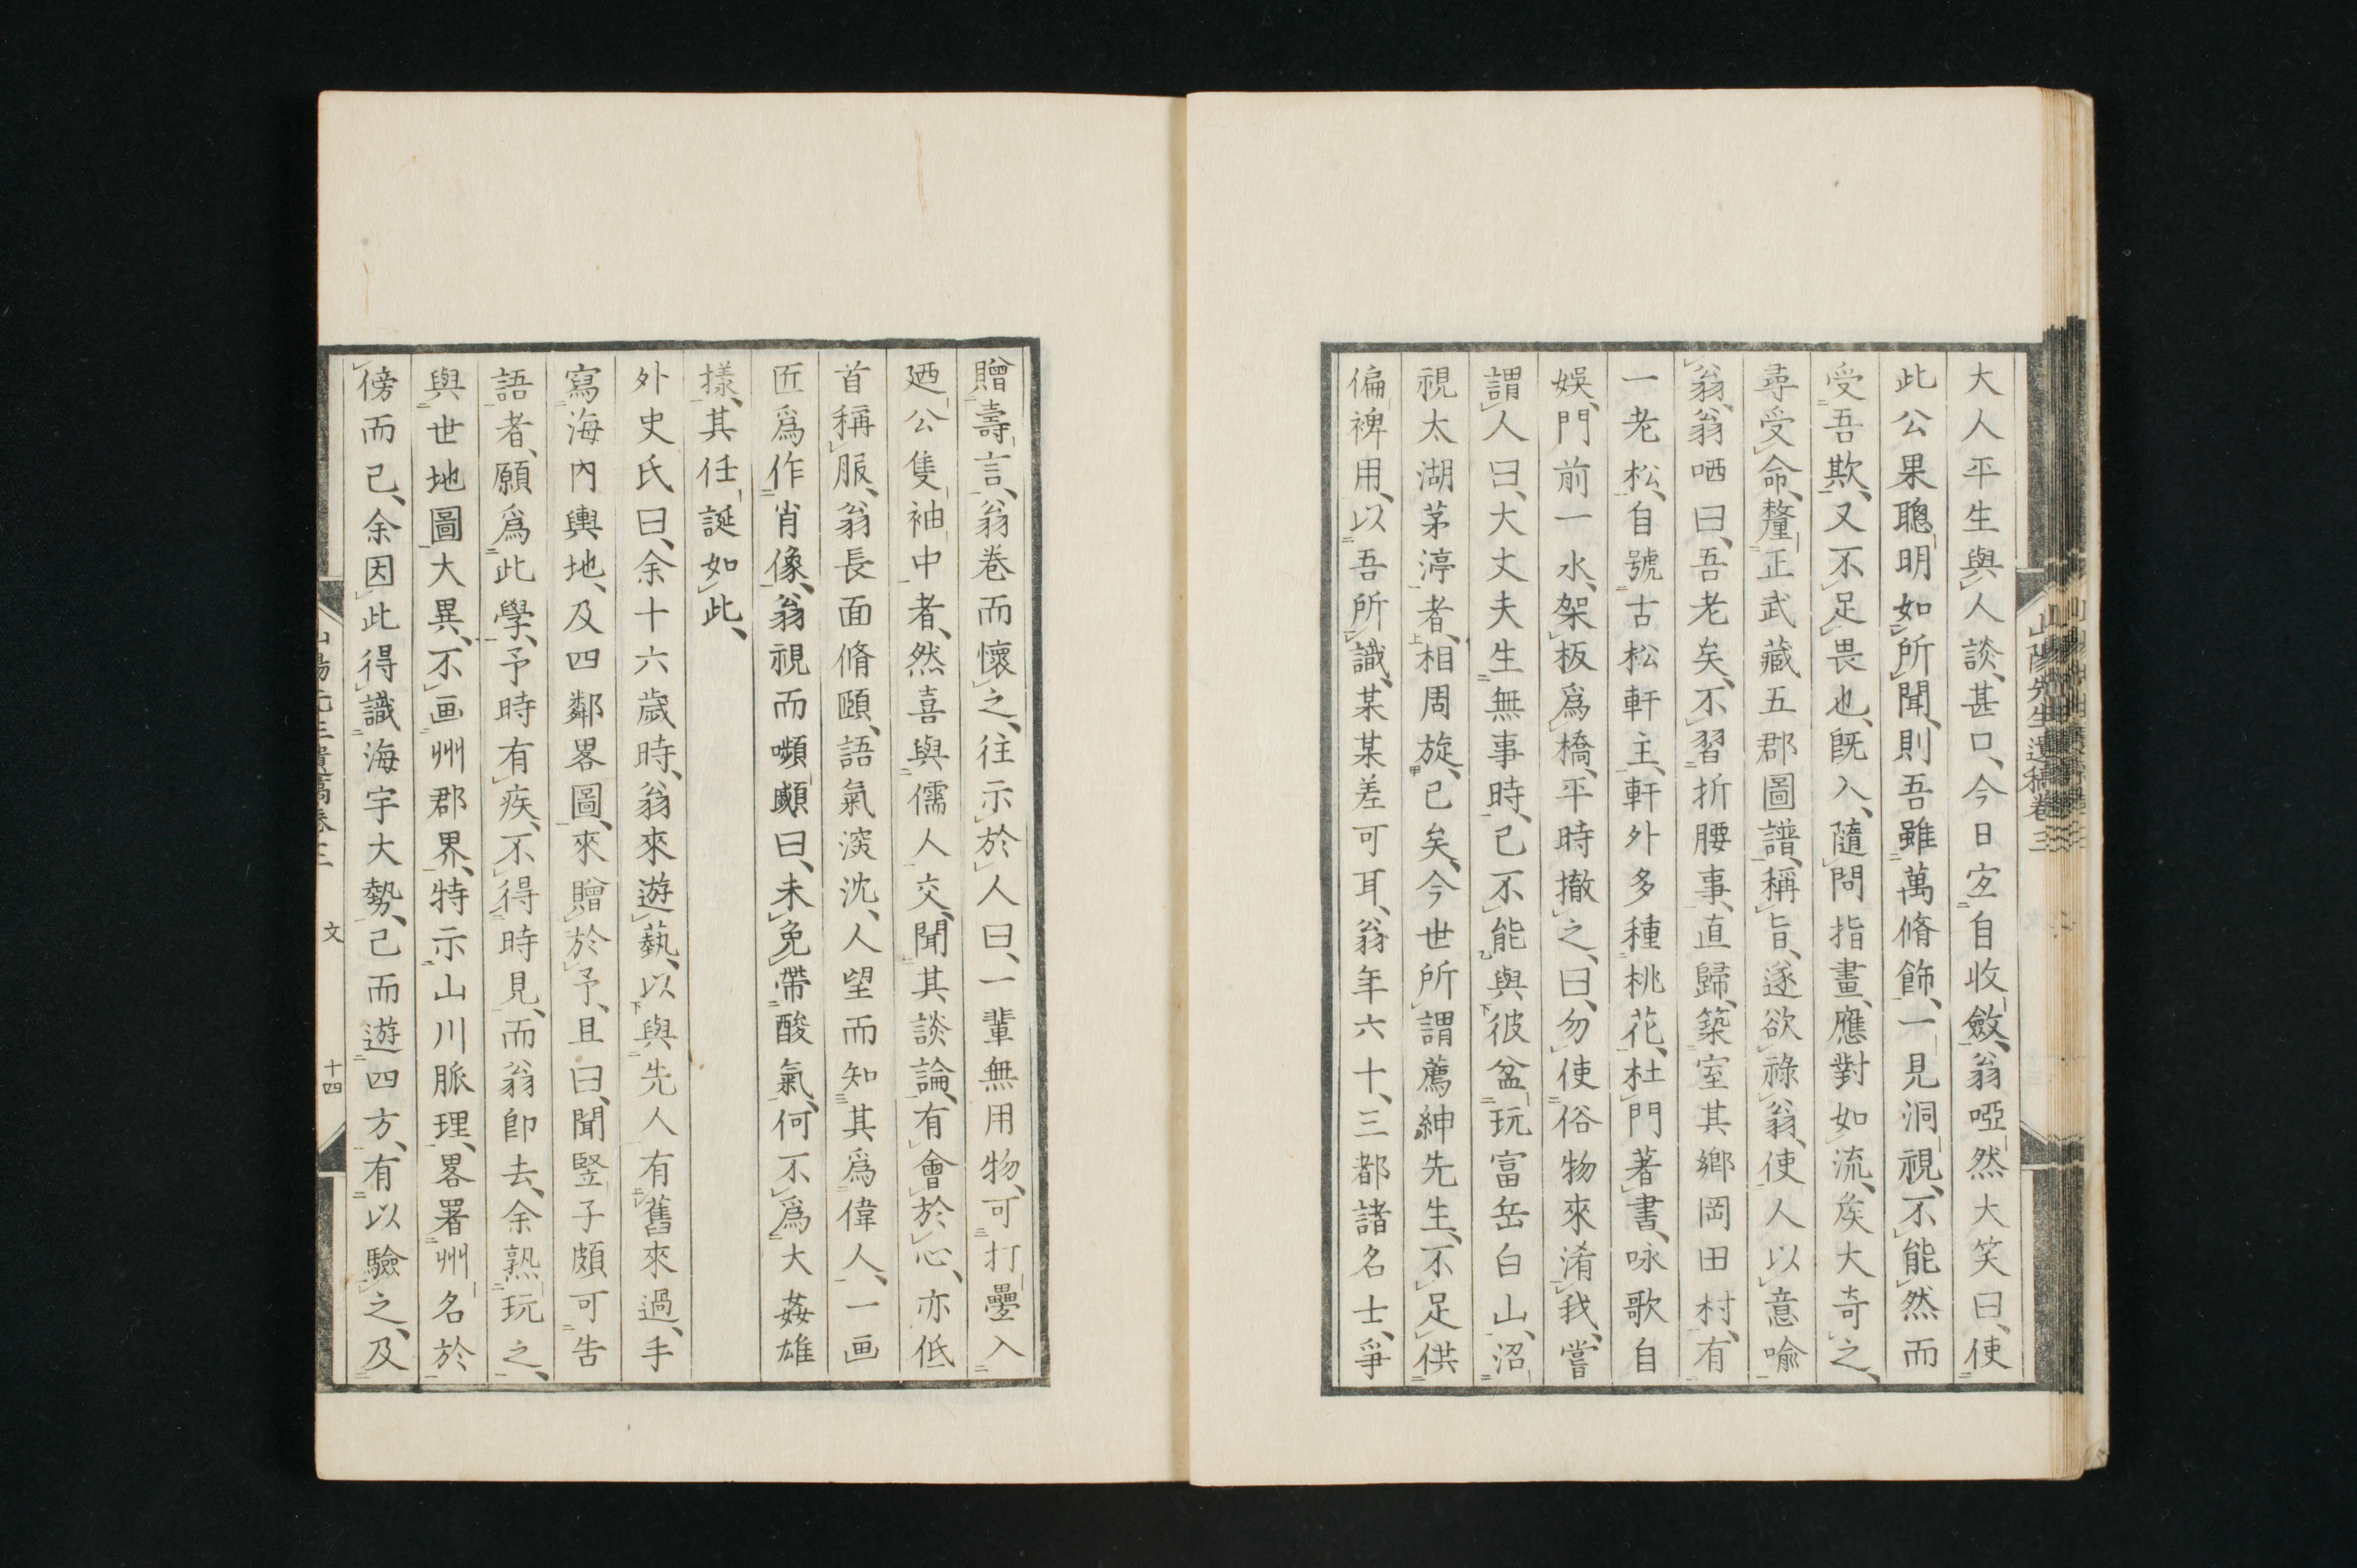 大人平生與人談、甚口、今日宜自收斂、翁啞然大笑曰、使
此公果聰明如所聞、則吾雖萬脩飾、一見洞視、不能然而
受吾欺、又不足畏也、既入、隨問指畫、應對如流、矦大奇之、
尋受命、釐正武藏五郡圖譜、稱旨、遂欲祿翁、使人以意喩
翁、翁哂曰、吾老矣、不習折腰事、直歸、築室其鄉岡田村、有
一老松、自號古松軒主、軒外多種桃花、杜門著書、咏歌自
娛、門前一水、架板爲橋、平時撤之、曰、勿使俗物來淆我、嘗
謂人曰、大丈夫生無事時、已不能與彼盆玩富岳白山、沼
視太湖茅渟者、相周旋、已矣、今世所謂薦紳先生、不足供
偏裨用、以吾所識、某某差可耳、翁年六十、三都諸名士、爭
贈壽言、翁卷而懷之、往示於人曰、一輩無用物、可打疊入
廼公隻袖中者、然喜與儒人交、聞其談論、有會於心、亦低
首稱服、翁長面脩頤、語氣深沈、人望而知其爲偉人、一画
匠爲作肖像、翁視而嚬顣曰、未免帶酸氣、何不爲大姦雄
樣、其任誕如此、
外史氏曰、余十六歲時、翁來遊藝、以與先人有舊來過、手
寫海內輿地、及四鄰畧圖、來贈於予、且曰、聞竪子頗可告
語者、願爲此學、予時有疾、不得時見、而翁卽去、余熟玩之、
與世地圖大異、不画州郡界、特示山川脈理、畧署州名於
傍而已、余因此得識海宇大勢、已而遊四方、有以驗之、及
山陽先生遺稿卷三
文
十四
山陽先生遺稿卷三